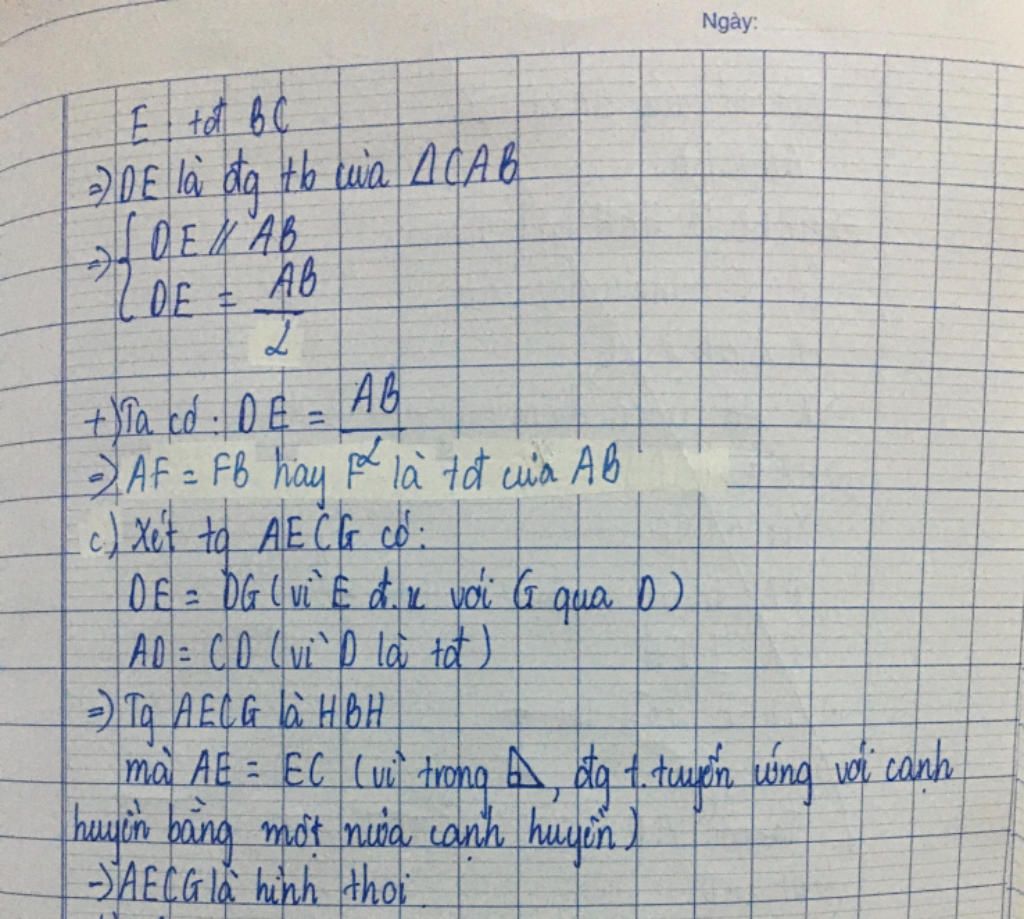 Ngày:
E tđ BC
=) DE là đg tb của ΔCAB
=) { DE // AB
DE = AB
2
+) Ta có: DE = AB
2
=) AF = FB hay F là tđ của AB
c) Xét tg AECG có:
DE = DG (vì E đ.x với G qua D)
AD = CD (vì D là tđ)
=) Tg AECG là HBH
mà AE = EC (vì trong ⊿, đg t.tuyến ứng với cạnh
huyền bằng một nửa cạnh huyền)
=) AECG là hình thoi